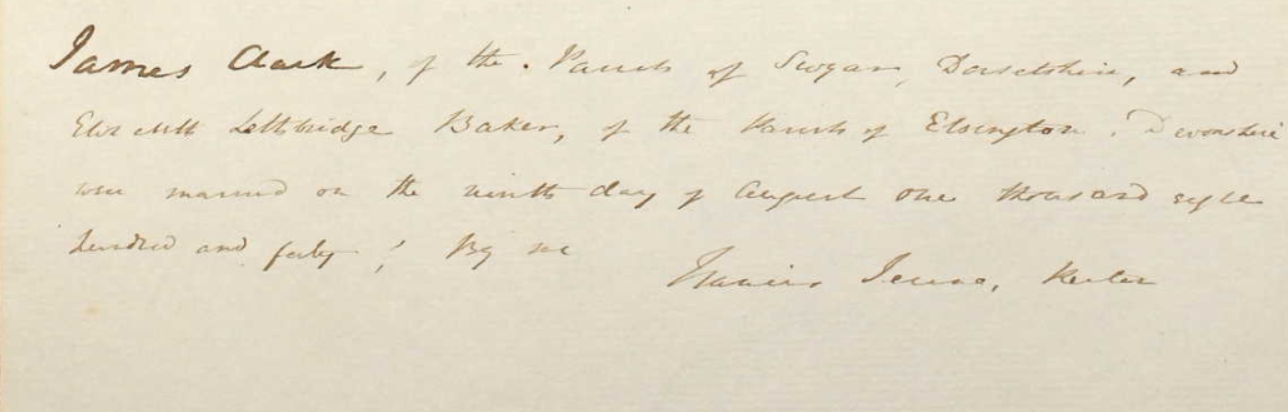 James Clark, of the Parish of Swyar, Dorsetshire, and
Elizabeth Lethbridge Baker, of the Parish of Elsington, Devonshire
were married on the ninth day of August one thousand eight
hundred and forty, By me
Francis Jeune, Rector